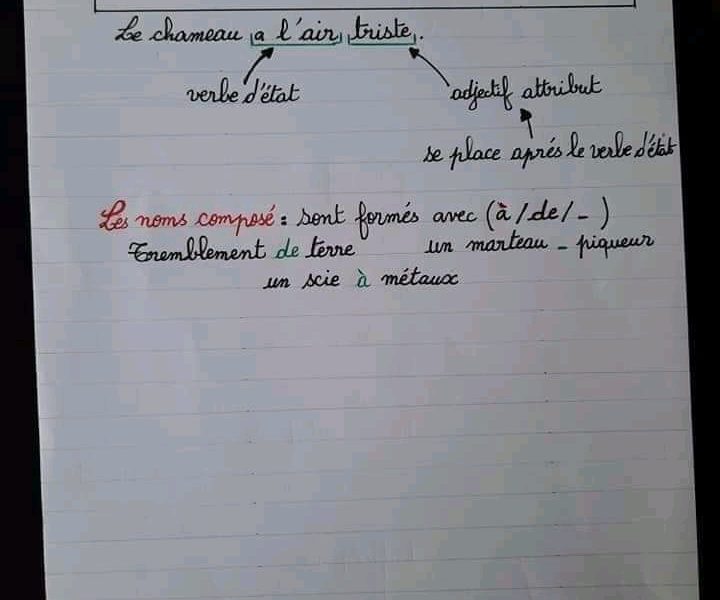 Le chameau a l'air triste.
verbe d'état adjectif attribut
se place aprés le verbe d'état
Les noms composé : sont formés avec (à / de / - )
Tremblement de terre un marteau - piqueur
un scie à métaux